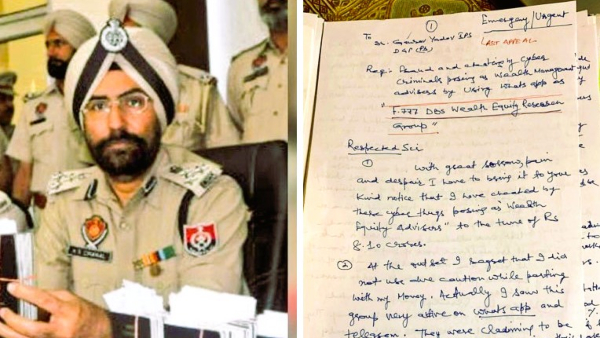 A S CHAHAL
①
Emergency/Urgent
To
Sh. Gaurav Yadav IPS
DGP (PB)
LAST APPEAL
Reg: Fraud and cheating by cyber
Criminals posing as Wealth Management
advisers by using Whats app as
"F-777 DBS Wealth Equity Research
Group"
Respected Sir
①
With great sorrow, pain
and despair I have to bring it to your
kind notice that I have cheated by
these cyber thugs posing as Wealth
Equity advisers" to the tune of Rs
8.10 crores.
②
At the outset I regret that I did
not use due caution while parting
with my Money. Actually I saw this
group very active on whats app and
telegram. They were claiming to be